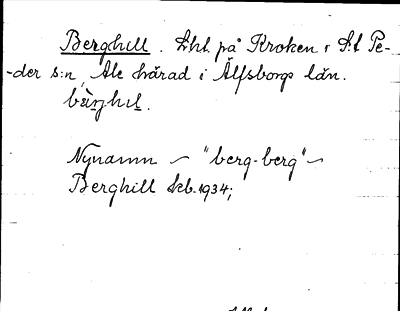 Berghill. Lht. på Kroken i S:t Pe-
-der s:n, Ale härad i Älfsborgs län.
bàrghıl.
Nynamn ~ "berg-berg" ~
Berghill Skb. 1934;